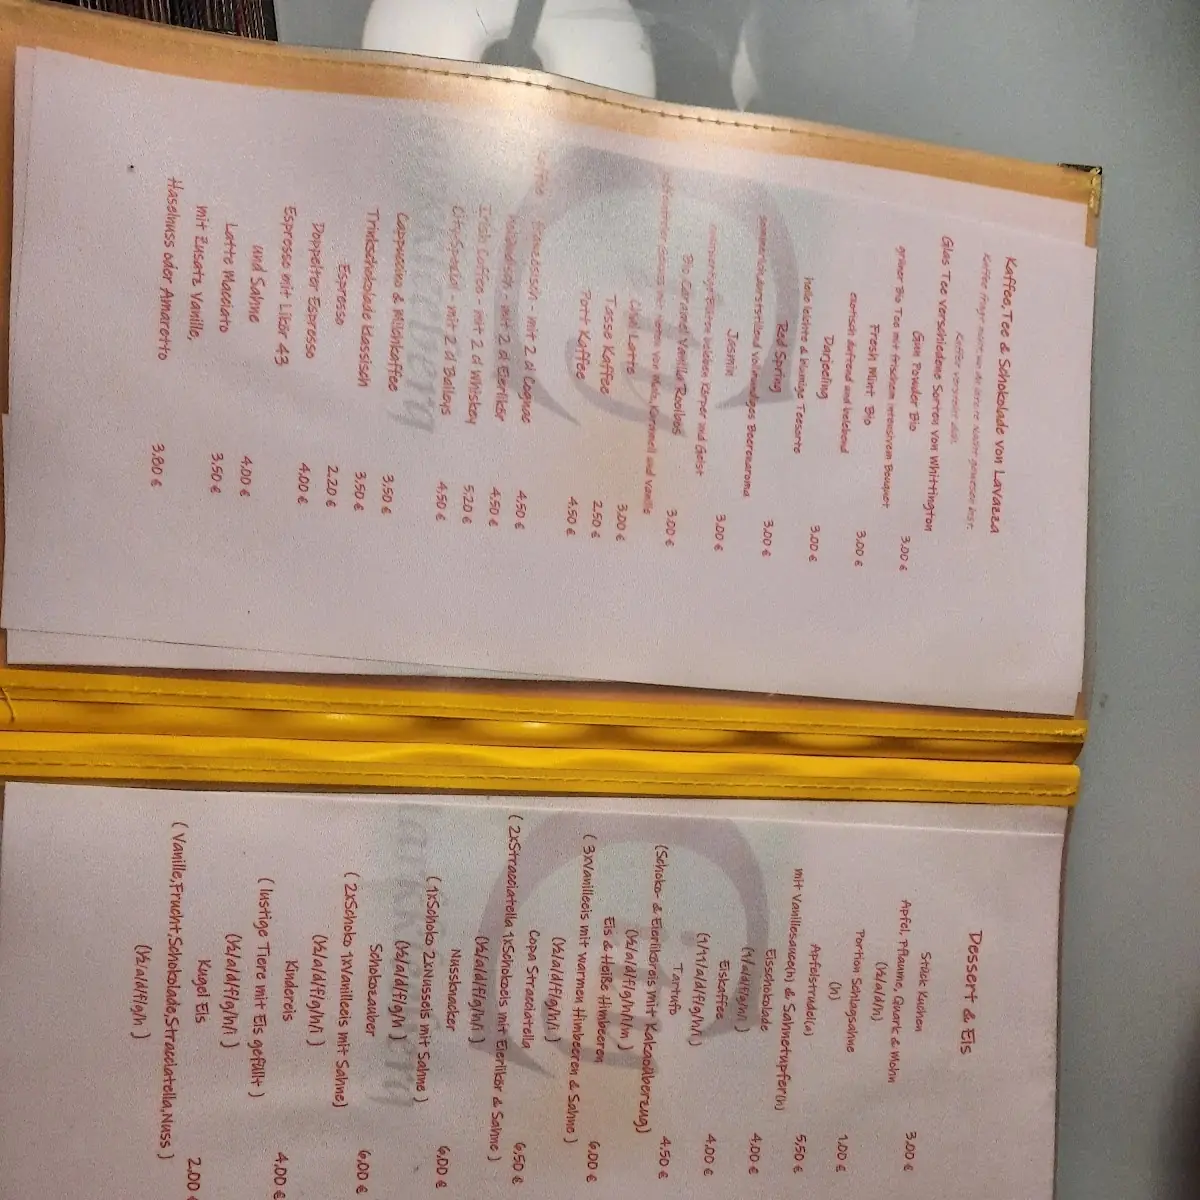 Kaffee, Tee & Schokolade von Lavazza
Kaffee fragt nicht wo du letzte Nacht gewesen bist.
Kaffee versteht dich.
Glas Tee verschiedene Sorten von Whittington
Gun Powder Bio 3.00 €
grüner Bio Tee mit frischem intensivem Bouquet
Fresh Mint Bio 3.00 €
aufrend und belebend
Darjeeling 3.00 €
helle leichte & blumige Teesorte
Red Spring 3.00 €
durststillend vollmundiges Beerenaroma
Jasmin 3.00 €
beleben Körper und Geist
Bio Caramel Vanilla Rooibos 3.00 €
von Karamell und Vanille
Chai Latte 3.00 €
Tasse Kaffee 2.50 €
Pott Kaffee 4.50 €
- mit 2 cl Cognac 4.50 €
- mit 2 cl Eierlikör 4.50 €
Irish Coffee - mit 2 cl Whiskey 5.20 €
City-Spezial - mit 2 cl Baileys 4.50 €
Cappuccino & Milchkaffee 3.50 €
Trinkschokolade klassisch 3.50 €
Espresso 2.20 €
Doppelter Espresso 4.00 €
Espresso mit Likör 43
und Sahne 4.00 €
Latte Macciato 3.50 €
mit Zusatz Vanille,
Haselnuss oder Amaretto 3.80 €
Dessert & Eis
Stück Kuchen 3.00 €
Apfel, Pflaume, Quark & Mohn
(½/a/d/h)
Portion Schlagsahne 1.00 €
(h)
Apfelstrudel(a) 5,50 €
mit Vanillesauce(h) & Sahnetupfer(h)
Eisschokolade 4,00 €
(1/a/d/f/g/h/i )
Eiskaffee 4,00 €
(1/11/a/d/f/g/h/i )
Tartufo 4.50 €
(Schoko- & Eierliköreis mit Kakaoüberzug)
(½/a/d/f/g/h/i/m )
Eis & Heiße Himbeeren 6.00 €
( 3xVanilleeis mit warmen Himbeeren & Sahne )
(½/a/d/f/g/h/i )
Copa Stracciatella 6,50 €
( 2xStracciatella 1xSchokoeis mit Eierlikör & Sahne )
(½/a/d/f/g/h/i )
Nussknacker 6,00 €
( 1xSchoko 2xNusseis mit Sahne )
(½/a/d/f/g/h )
Schokozauber 6,00 €
( 2xSchoko 1xVanilleeis mit Sahne)
(½/a/d/f/g/h/i )
Kindereis 4,00 €
( lustige Tiere mit Eis gefüllt )
(½/a/d/f/g/h/i )
Kugel Eis 2.00
( Vanille,Frucht,Schokolade,Stracciatella,Nuss )
(½/a/d/f/g/h )